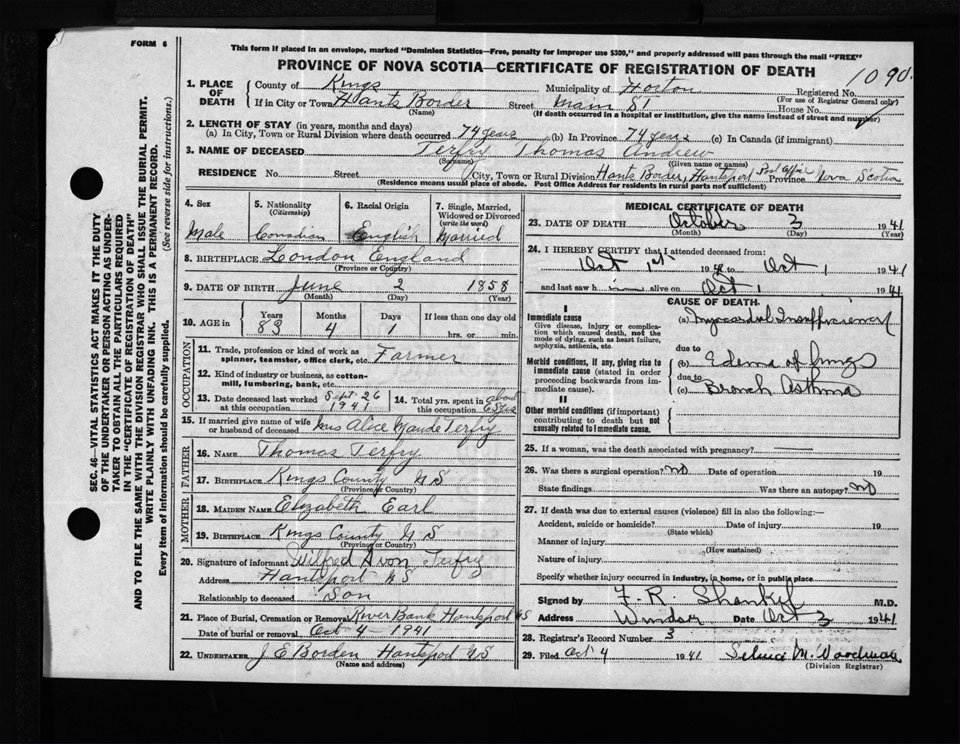 FORM 6
This form if placed in an envelope, marked "Dominion Statistics—Free, penalty for improper use $300," and properly addressed will pass through the mail "FREE"
PROVINCE OF NOVA SCOTIA—CERTIFICATE OF REGISTRATION OF DEATH
1090
1. PLACE OF DEATH
County of Kings Municipality of Horton Registered No.
(For use of Registrar General only)
If in City or Town Hants Border Street Main St House No.
(Name) (If death occurred in a hospital or institution, give the name instead of street and number)
2. LENGTH OF STAY (in years, months and days)
(a) In City, Town or Rural Division where death occurred 74 years (b) In Province 74 years (c) In Canada (if immigrant)
3. NAME OF DECEASED Terfry Thomas Andrew
(Surname) (Given name or names)
RESIDENCE No. Street City, Town or Rural Division Hants Border, Hantsport Post Office Province Nova Scotia
(Residence means usual place of abode. Post Office Address for residents in rural parts not sufficient)
4. Sex
Male
5. Nationality (Citizenship)
Canadian
6. Racial Origin
English
7. Single, Married, Widowed or Divorced (write the word)
Married
8. BIRTHPLACE London England
(Province or Country)
9. DATE OF BIRTH June 2 1858
(Month) (Day) (Year)
10. AGE in Years Months Days If less than one day old
83 4 1 hrs. or min.
OCCUPATION
11. Trade, profession or kind of work as spinner, teamster, office clerk, etc. Farmer
12. Kind of industry or business, as cotton-mill, lumbering, bank, etc.
13. Date deceased last worked at this occupation Sept 26 1941
14. Total yrs. spent in this occupation about 65 yrs
15. If married give name of wife or husband of deceased Mrs Alice Maude Terfry
FATHER
16. NAME Thomas Terfry
17. BIRTHPLACE Kings County N S
(Province or Country)
MOTHER
18. MAIDEN NAME Elizabeth Earl
19. BIRTHPLACE Kings County N S
(Province or Country)
20. Signature of informant Wilfred Avon Terfry
Address Hantsport N S
Relationship to deceased Son
21. Place of Burial, Cremation or Removal River Bank Hantsport NS
Date of burial or removal Oct 4 - 1941
22. UNDERTAKER J E Borden Hantsport NS
(Name and address)
MEDICAL CERTIFICATE OF DEATH
23. DATE OF DEATH October 3 1941
(Month) (Day) (Year)
24. I HEREBY CERTIFY that I attended deceased from:
Oct 1st 1941 to Oct 1 1941
and last saw h im alive on Oct 1 1941
CAUSE OF DEATH
I
Immediate cause
Give disease, injury or complication which caused death, not the mode of dying, such as heart failure, asphyxia, asthenia, etc.
(a) Myocardial Insufficiency
due to
Morbid conditions, if any, giving rise to immediate cause (stated in order proceeding backwards from immediate cause).
(b) Edema of lungs
due to
(c) Bronch Asthma
II
Other morbid conditions (if important) contributing to death but not causally related to immediate cause.
25. If a woman, was the death associated with pregnancy?
26. Was there a surgical operation? no Date of operation 19
State findings Was there an autopsy? no
27. If death was due to external causes (violence) fill in also the following:—
Accident, suicide or homicide? Date of injury 19
(State which)
Manner of injury
(How sustained)
Nature of injury
Specify whether injury occurred in industry, in home, or in public place
Signed by F. R. Shankel M.D.
Address Windsor Date Oct 3 1941
28. Registrar's Record Number 3
29. Filed Oct 4 1941 M. Woodman
(Division Registrar)
SEC. 46—VITAL STATISTICS ACT MAKES IT THE DUTY
OF THE UNDERTAKER OR PERSON ACTING AS UNDERTAKER TO OBTAIN ALL THE PARTICULARS REQUIRED
IN THE "CERTIFICATE OF REGISTRATION OF DEATH"
AND TO FILE THE SAME WITH THE DIVISION REGISTRAR WHO SHALL ISSUE THE BURIAL PERMIT.
WRITE PLAINLY WITH UNFADING INK. THIS IS A PERMANENT RECORD.
Every item of information should be carefully supplied.
(See reverse side for instructions.)